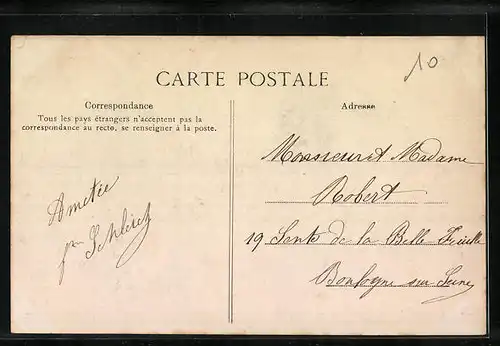 10
CARTE POSTALE
Correspondance
Tous les pays étrangers n'acceptent pas la
correspondance au recto, se renseigner à la poste.
Adresse
Monsieur et Madame
Robert
19 Sente de la Belle Feuille
Boulogne sur Seine